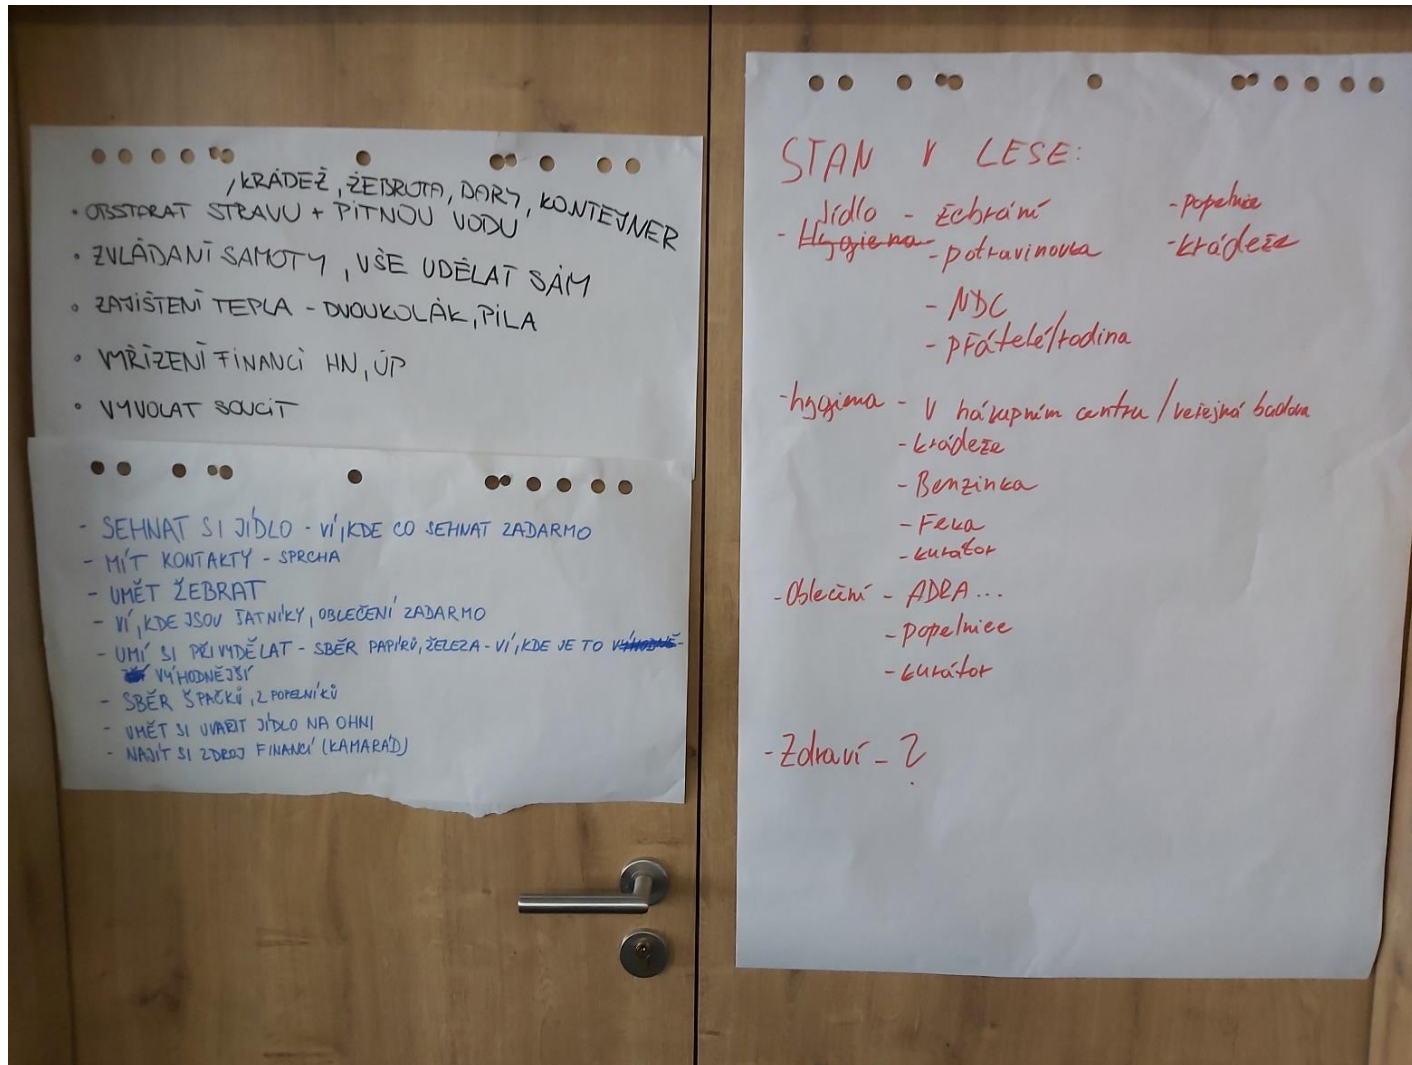 , KRÁDEŽ, ŽEBROTA, DARY, KONTEJNER
• OBSTARAT STRAVU + PITNOU VODU
• ZVLÁDANÍ SAMOTY, VŠE UDĚLAT SÁM
• ZAJIŠTENÍ TEPLA - DVOUKOLÁK, PILA
• VYŘÍZENÍ FINANCÍ HN, ÚP
• VYVOLAT SOUCIT
- SEHNAT SI JÍDLO - VÍ, KDE CO SEHNAT ZADARMO
- MÍT KONTAKTY - SPRCHA
- UMĚT ŽEBRAT
- VÍ, KDE JSOU ŠATNÍKY, OBLEČENÍ ZADARMO
- UMÍ SI PŘIVYDĚLAT - SBĚR PAPÍRŮ, ŽELEZA - VÍ, KDE JE TO VÝHODNĚ-
VÝHODNĚJŠÍ
- SBĚR ŠPAČKŮ, Z POPELNÍKŮ
- UMĚT SI UVAŘIT JÍDLO NA OHNI
- NAJÍT SI ZDROJ FINANCÍ (KAMARÁD)
STAN V LESE:
Jídlo - žebrání - popelnice
- Hygiena - potravinovka - krádeže
- NDC
- přátelé/rodina
- hygiena - V nákupním centru / veřejná budova
- krádeže
- Benzinka
- Feka
- kurátor
- Oblečení - ADRA...
- popelnice
- kurátor
- Zdraví - ?